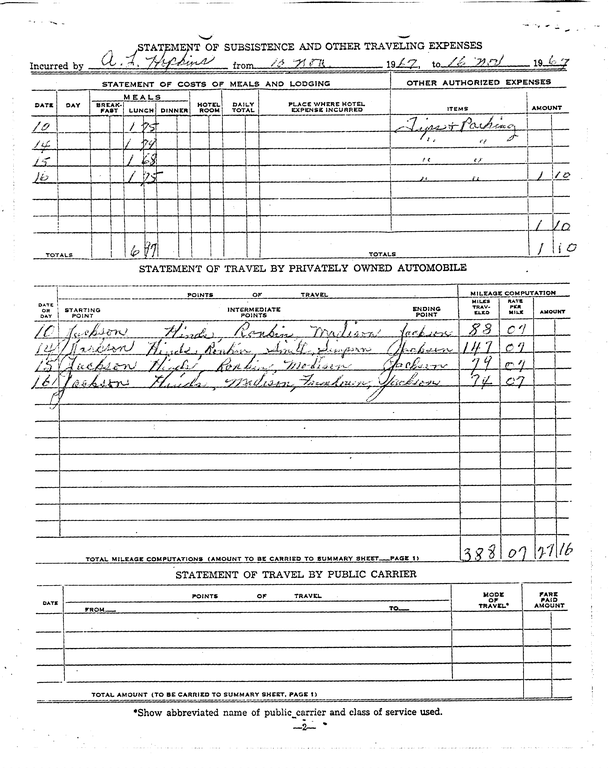 STATEMENT OF SUBSISTENCE AND OTHER TRAVELING EXPENSES
Incurred by A. L. Hopkins from 10 Nov 1967, to 16 Nov 1967
STATEMENT OF COSTS OF MEALS AND LODGING OTHER AUTHORIZED EXPENSES
DATE DAY MEALS BREAK-FAST LUNCH DINNER HOTEL ROOM DAILY TOTAL PLACE WHERE HOTEL EXPENSE INCURRED ITEMS AMOUNT
10 1 75 Tips & Parking
14 1 79 " "
15 1 68 " "
16 1 75 " " 1 10
1 10
TOTALS 6 97 TOTALS 1 10
STATEMENT OF TRAVEL BY PRIVATELY OWNED AUTOMOBILE
DATE OR DAY POINTS OF TRAVEL MILEAGE COMPUTATION
STARTING POINT INTERMEDIATE POINTS ENDING POINT MILES TRAV-ELED RATE PER MILE AMOUNT
10 Jackson Hinds, Rankin, Madison Jackson 88 07
14 Jackson Hinds, Rankin, Smith, Simpson Jackson 147 07
15 Jackson Hinds, Rankin, Madison Jackson 79 07
16 Jackson Hinds, Madison, Jackson 74 07
TOTAL MILEAGE COMPUTATIONS (AMOUNT TO BE CARRIED TO SUMMARY SHEET PAGE 1) 388 07 27 16
STATEMENT OF TRAVEL BY PUBLIC CARRIER
DATE POINTS OF TRAVEL MODE OF TRAVEL* FARE PAID AMOUNT
FROM TO
TOTAL AMOUNT (TO BE CARRIED TO SUMMARY SHEET, PAGE 1)
*Show abbreviated name of public carrier and class of service used.
—2—